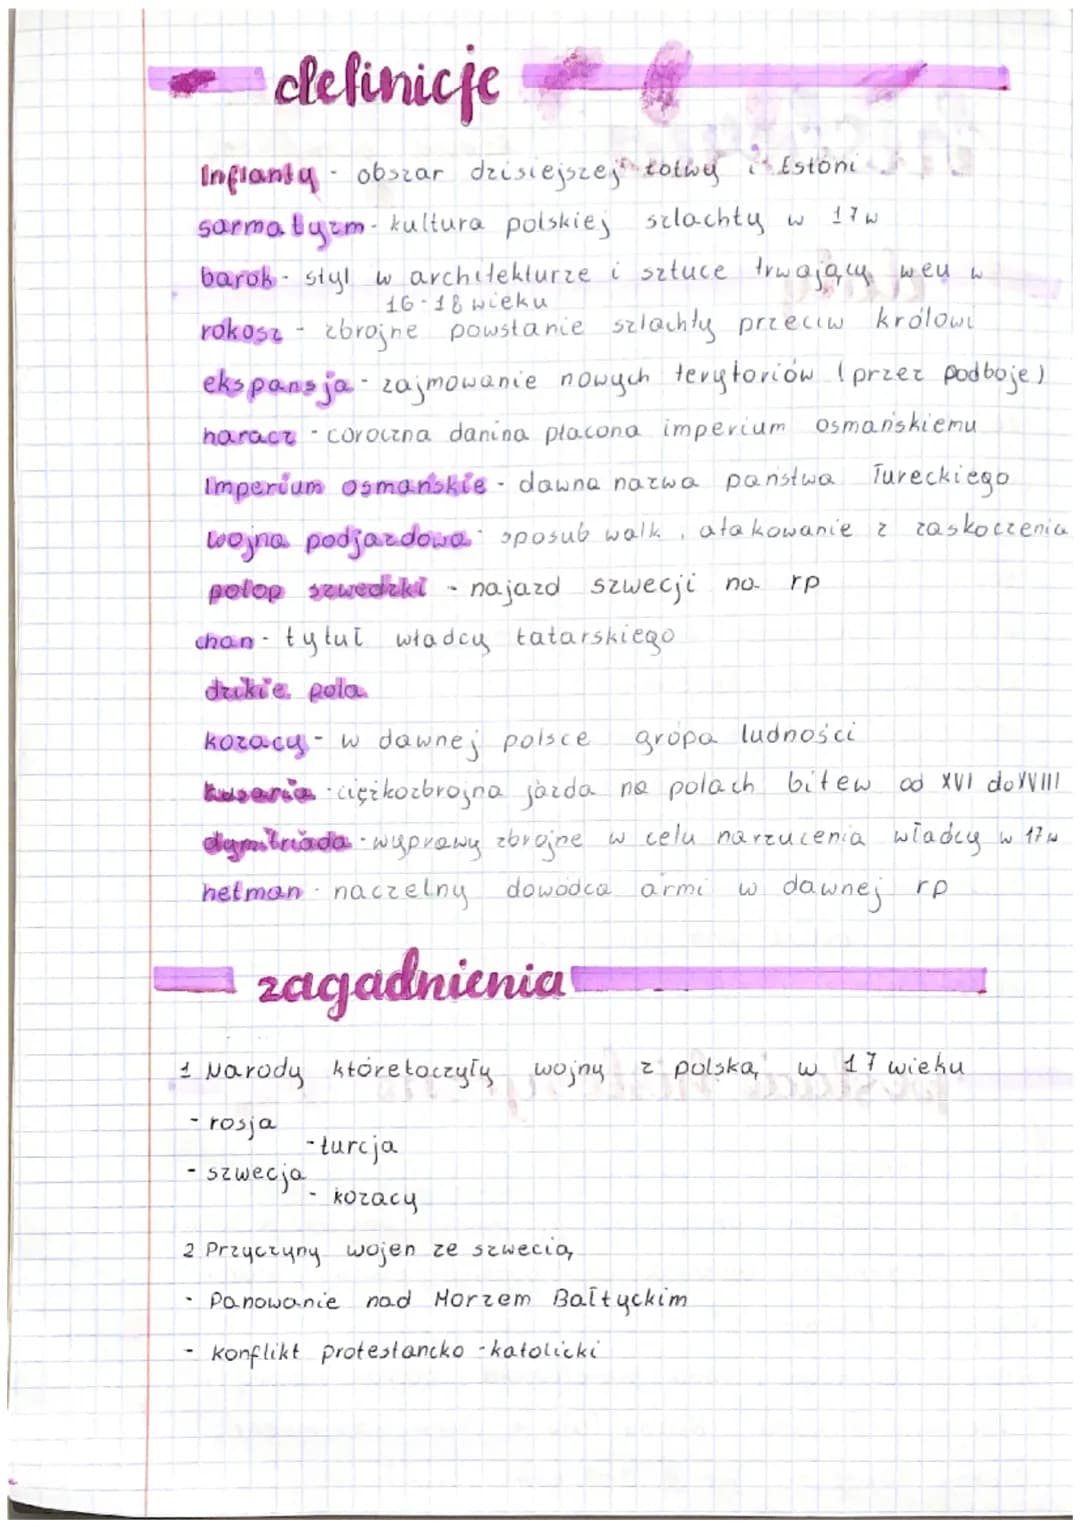 definicje
Inflanty - obszar dzisiejszej łotwy i Estoni
sarmatyzm - kultura polskiej szlachty w 17w
barok - styl w architekturze i sztuce trwający weu w
16-18 wieku
rokosz - zbrojne powstanie szlachty przeciw królowi
ekspansja - zajmowanie nowych terytoriów (przez podboje)
haracz - coroczna danina płacona imperium osmańskiemu
Imperium osmańskie - dawna nazwa państwa Tureckiego
wojna podjazdowa - sposub walk, atakowanie z zaskoczenia
potop szwedzki - najazd szwecji na rp
chan - tytuł władcy tatarskiego
dzikie pola
kozacy - w dawnej polsce grópa ludności
husaria - ciężkozbrojna jazda na polach bitew od XVI do XVIII
dymitriada - wyprawy zbrojne w celu narzucenia władcy w 17w
hetman - naczelny dowódca armi w dawnej rp
zagadnienia
1 Narody które toczyły wojny z polską w 17 wieku
- rosja
- turcja
- szwecja
- kozacy
2 Przyczyny wojen ze szwecią
- Panowanie nad Morzem Bałtyckim
- Konflikt protestancko - katolicki